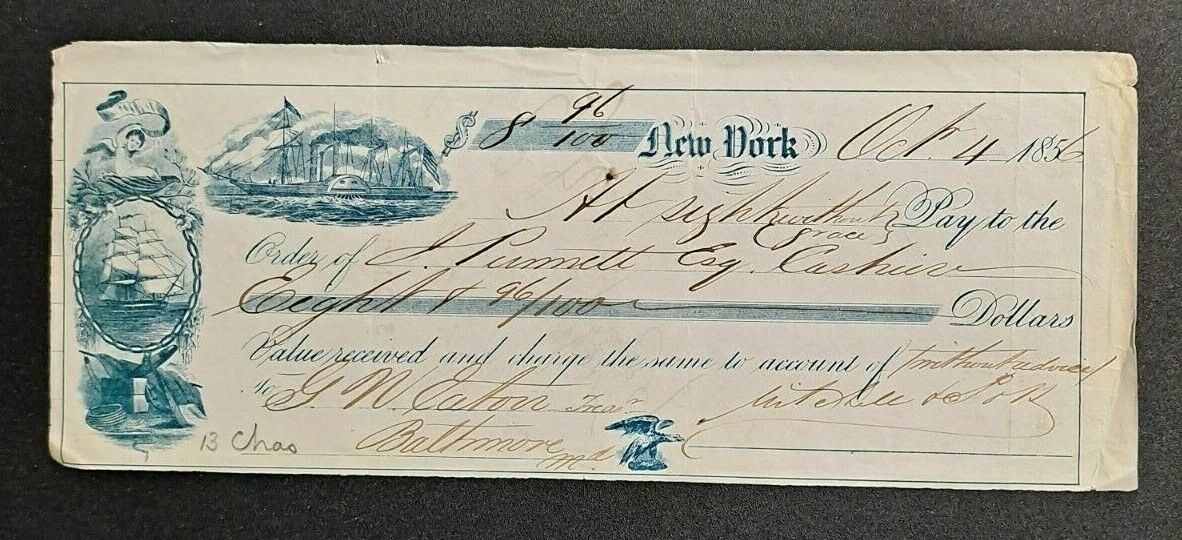 $ 8 96/100 New York Oct. 4 1856
At sight without grace Pay to the
Order of J. Punnett Esq. Cashier
Eight & 96/100 Dollars
Value received and charge the same to account of without advice
To G. N. Eaton Trear
Baltimore
Md
13 Chas